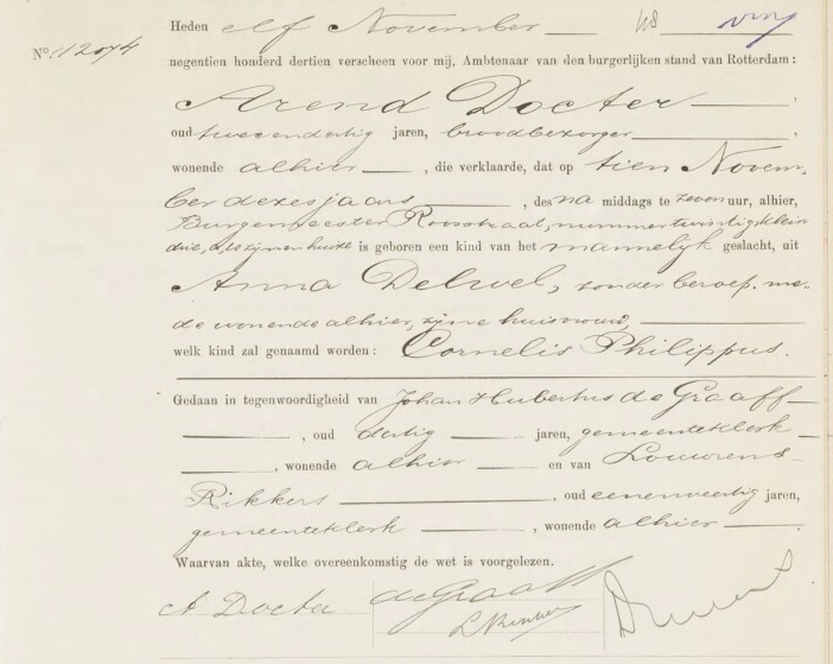 Heden elf November
No. 12074
negentien honderd dertien verscheen voor mij, Ambtenaar van den burgerlijken stand van Rotterdam:
Arend Docter,
oud twee en dertig jaren, broodbezorger,
wonende alhier, die verklaarde, dat op tien Novem-
ber dezes jaars, des na middags te zeven uur, alhier,
Burgemeester Roosstraat, nummer twintig, klein
drie, a, te zijnen huize is geboren een kind van het mannelijk geslacht, uit
Anna Delwel, zonder beroep, me-
de wonende alhier, zijne huisvrouw,
welk kind zal genaamd worden: Cornelis Philippus.
Gedaan in tegenwoordigheid van Johan Hubertus de Graaff
, oud dertig jaren, gemeenteklerk
, wonende alhier en van Louwrens
Rikkers, oud eenenveertig jaren,
gemeenteklerk, wonende alhier
Waarvan akte, welke overeenkomstig de wet is voorgelezen.
A Docter de Graaff
L Rikkers